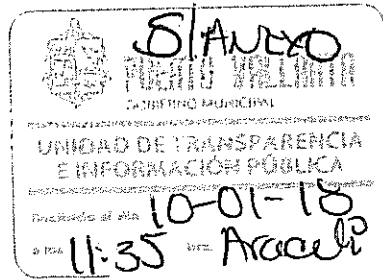 S/ANEXO
PUERTO VALLARTA
GOBIERNO MUNICIPAL
UNIDAD DE TRANSPARENCIA
E INFORMACIÓN PÚBLICA
Recibido el día 10-01-18
a las 11:35 hrs Araceli